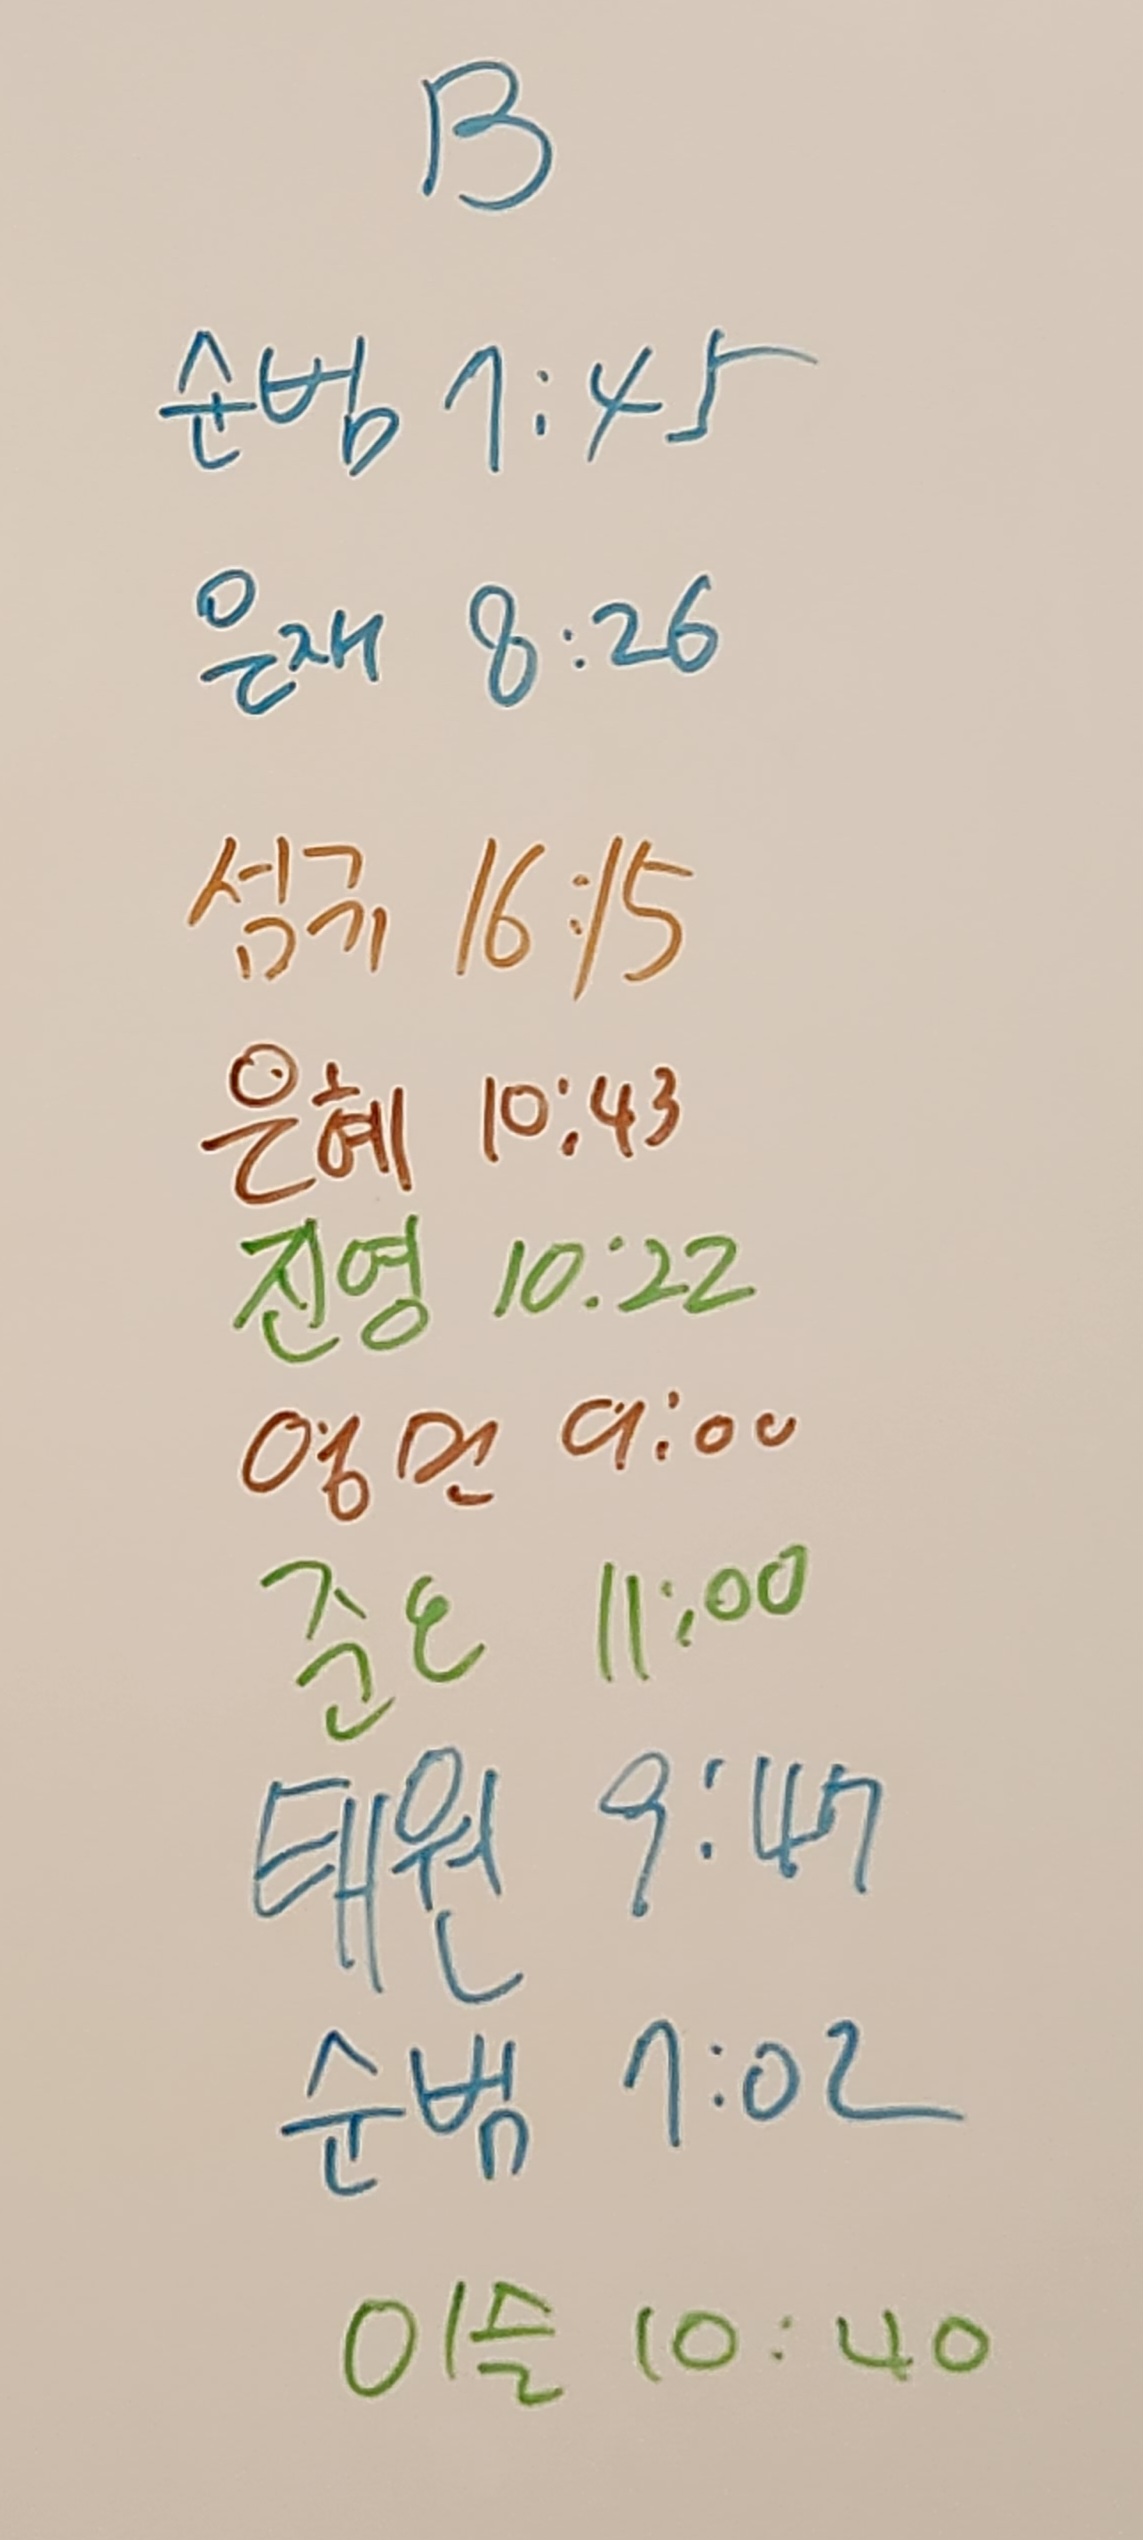 B
순범 7:45
은재 8:26
섬규 16:15
은혜 10:43
진영 10:22
영면 9:00
준호 11:00
태원 9:47
순범 7:02
이들 10:40